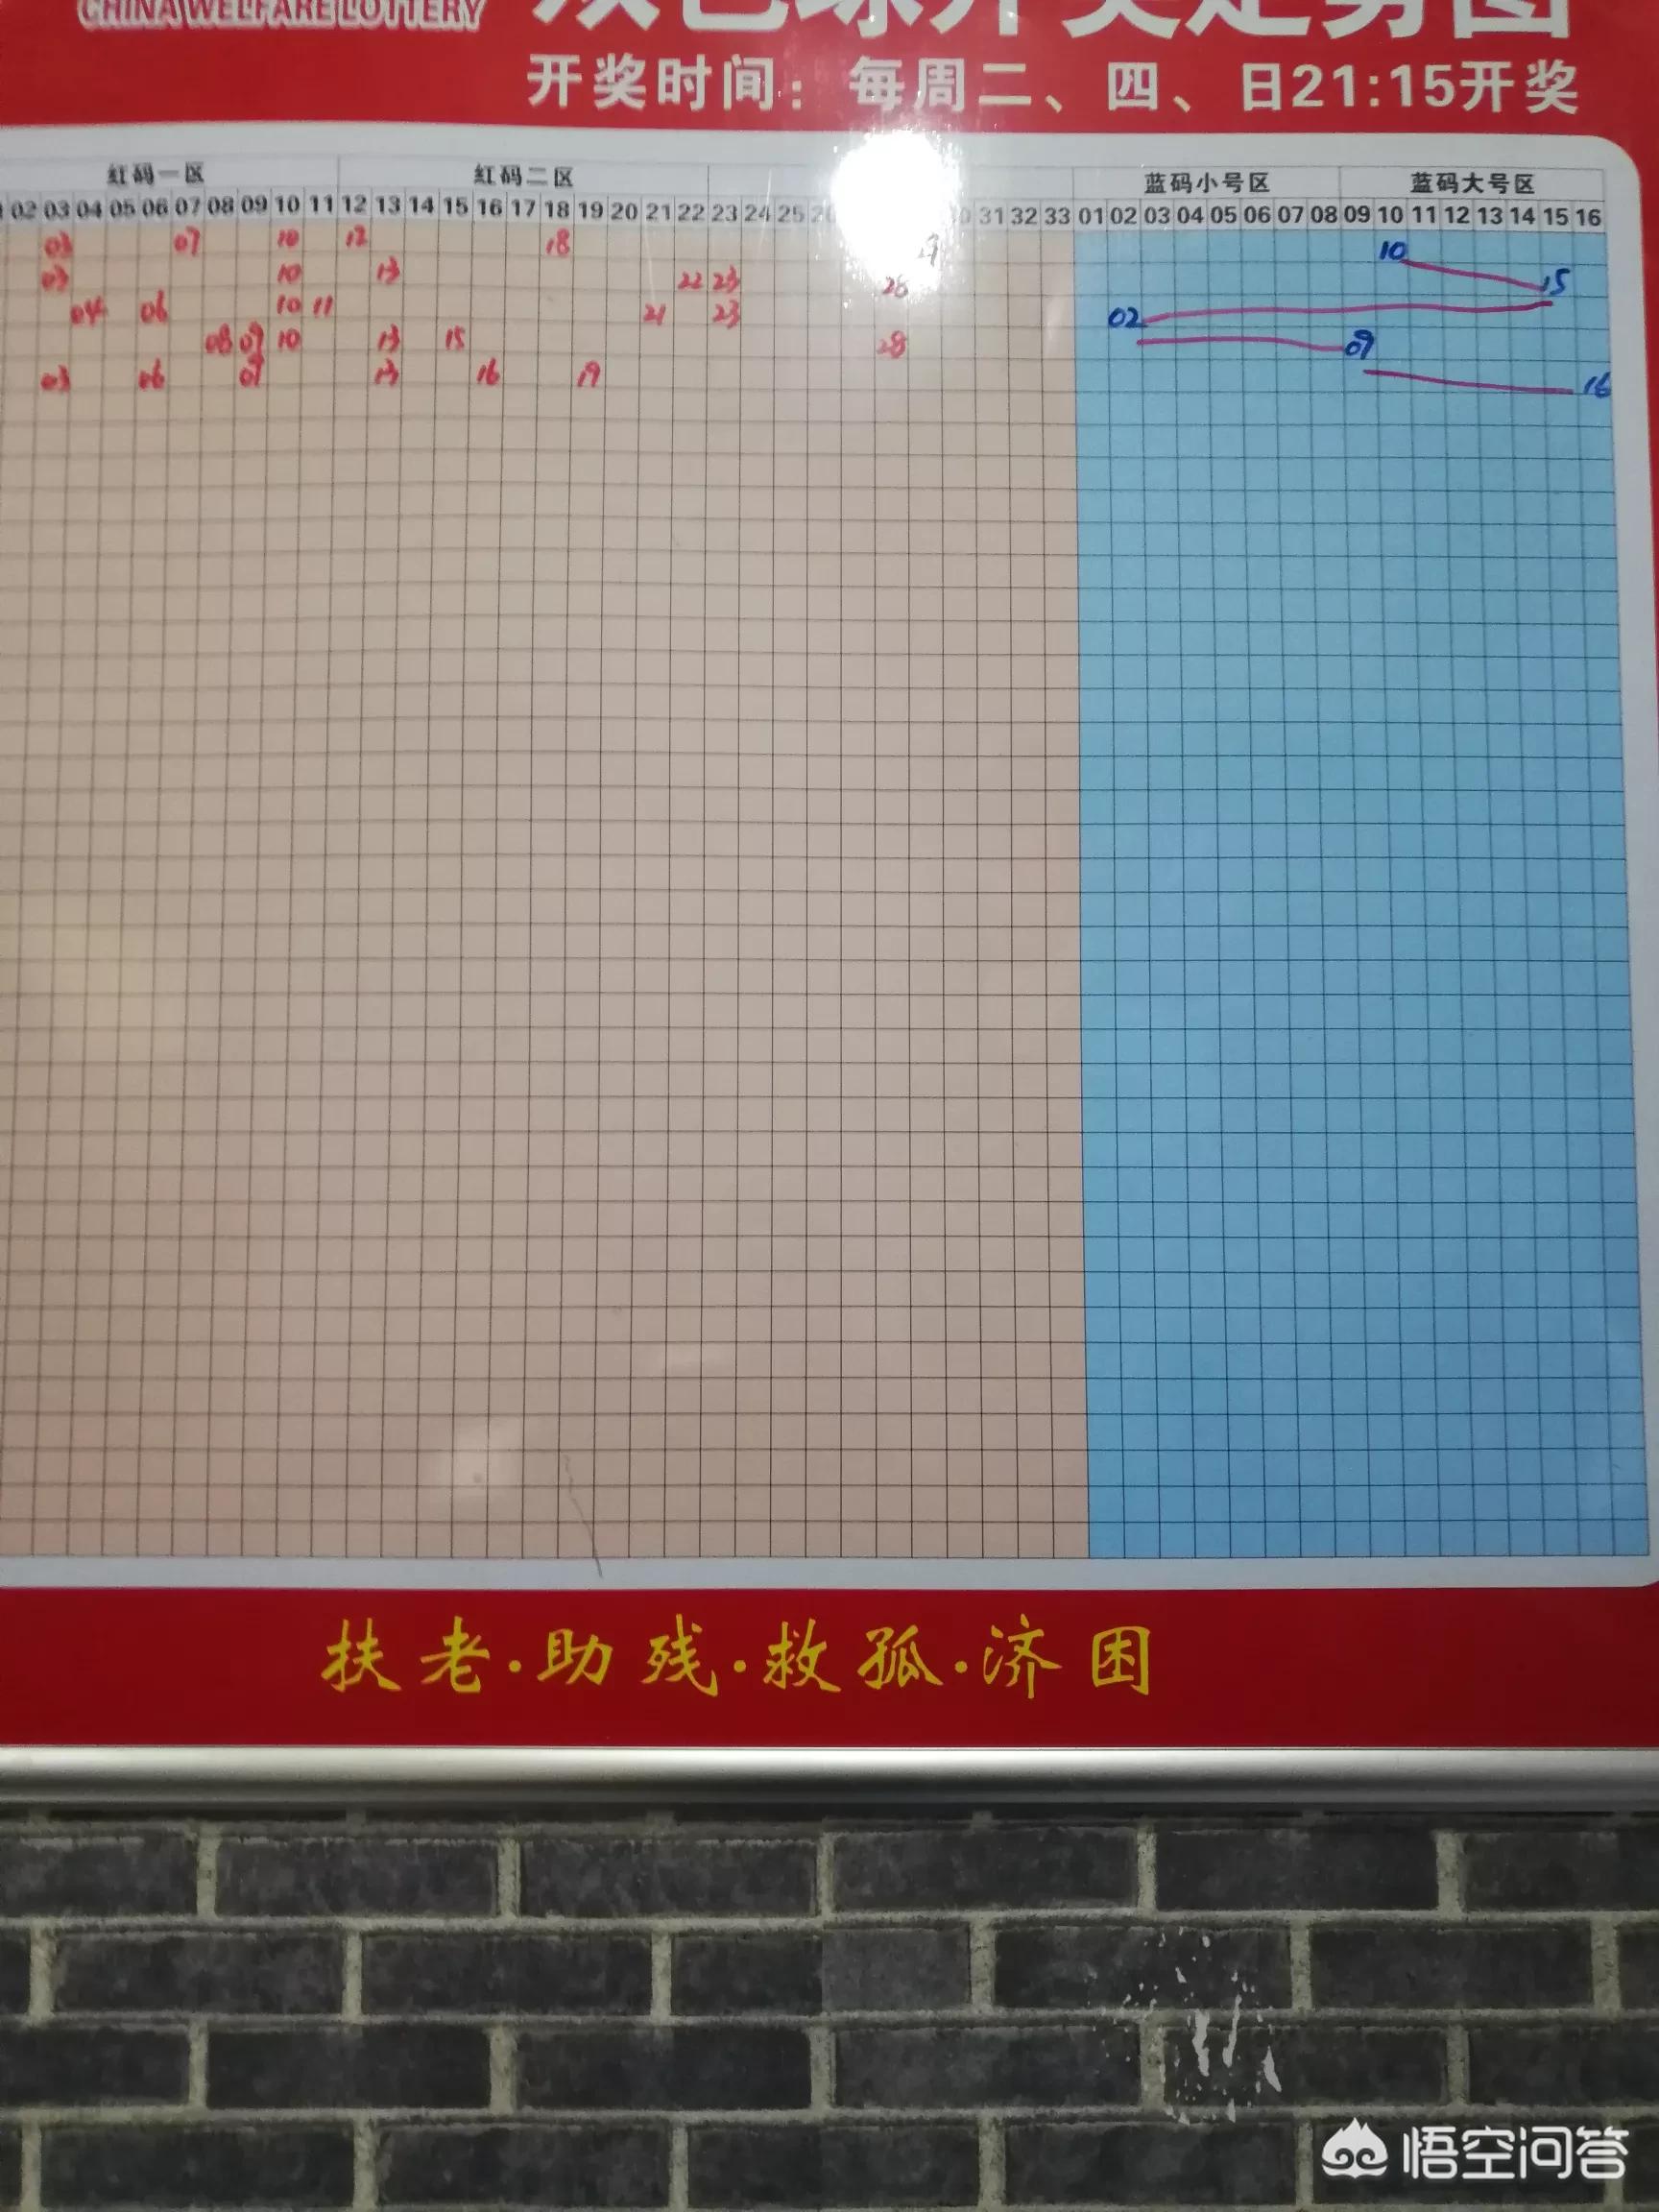 CHINA WELFARE LOTTERY 双色球开奖走势图
开奖时间：每周二、四、日21:15开奖
红码一区 红码二区 蓝码小号区 蓝码大号区
02 03 04 05 06 07 08 09 10 11 12 13 14 15 16 17 18 19 20 21 22 23 24 25 31 32 33 01 02 03 04 05 06 07 08 09 10 11 12 13 14 15 16
03 07 10 12 18 10
03 10 13 22 23 28 15
04 06 10 11 21 23 02
08 09 10 13 15 28 09
03 06 09 13 16 19 16
扶老·助残·救孤·济困
悟空问答